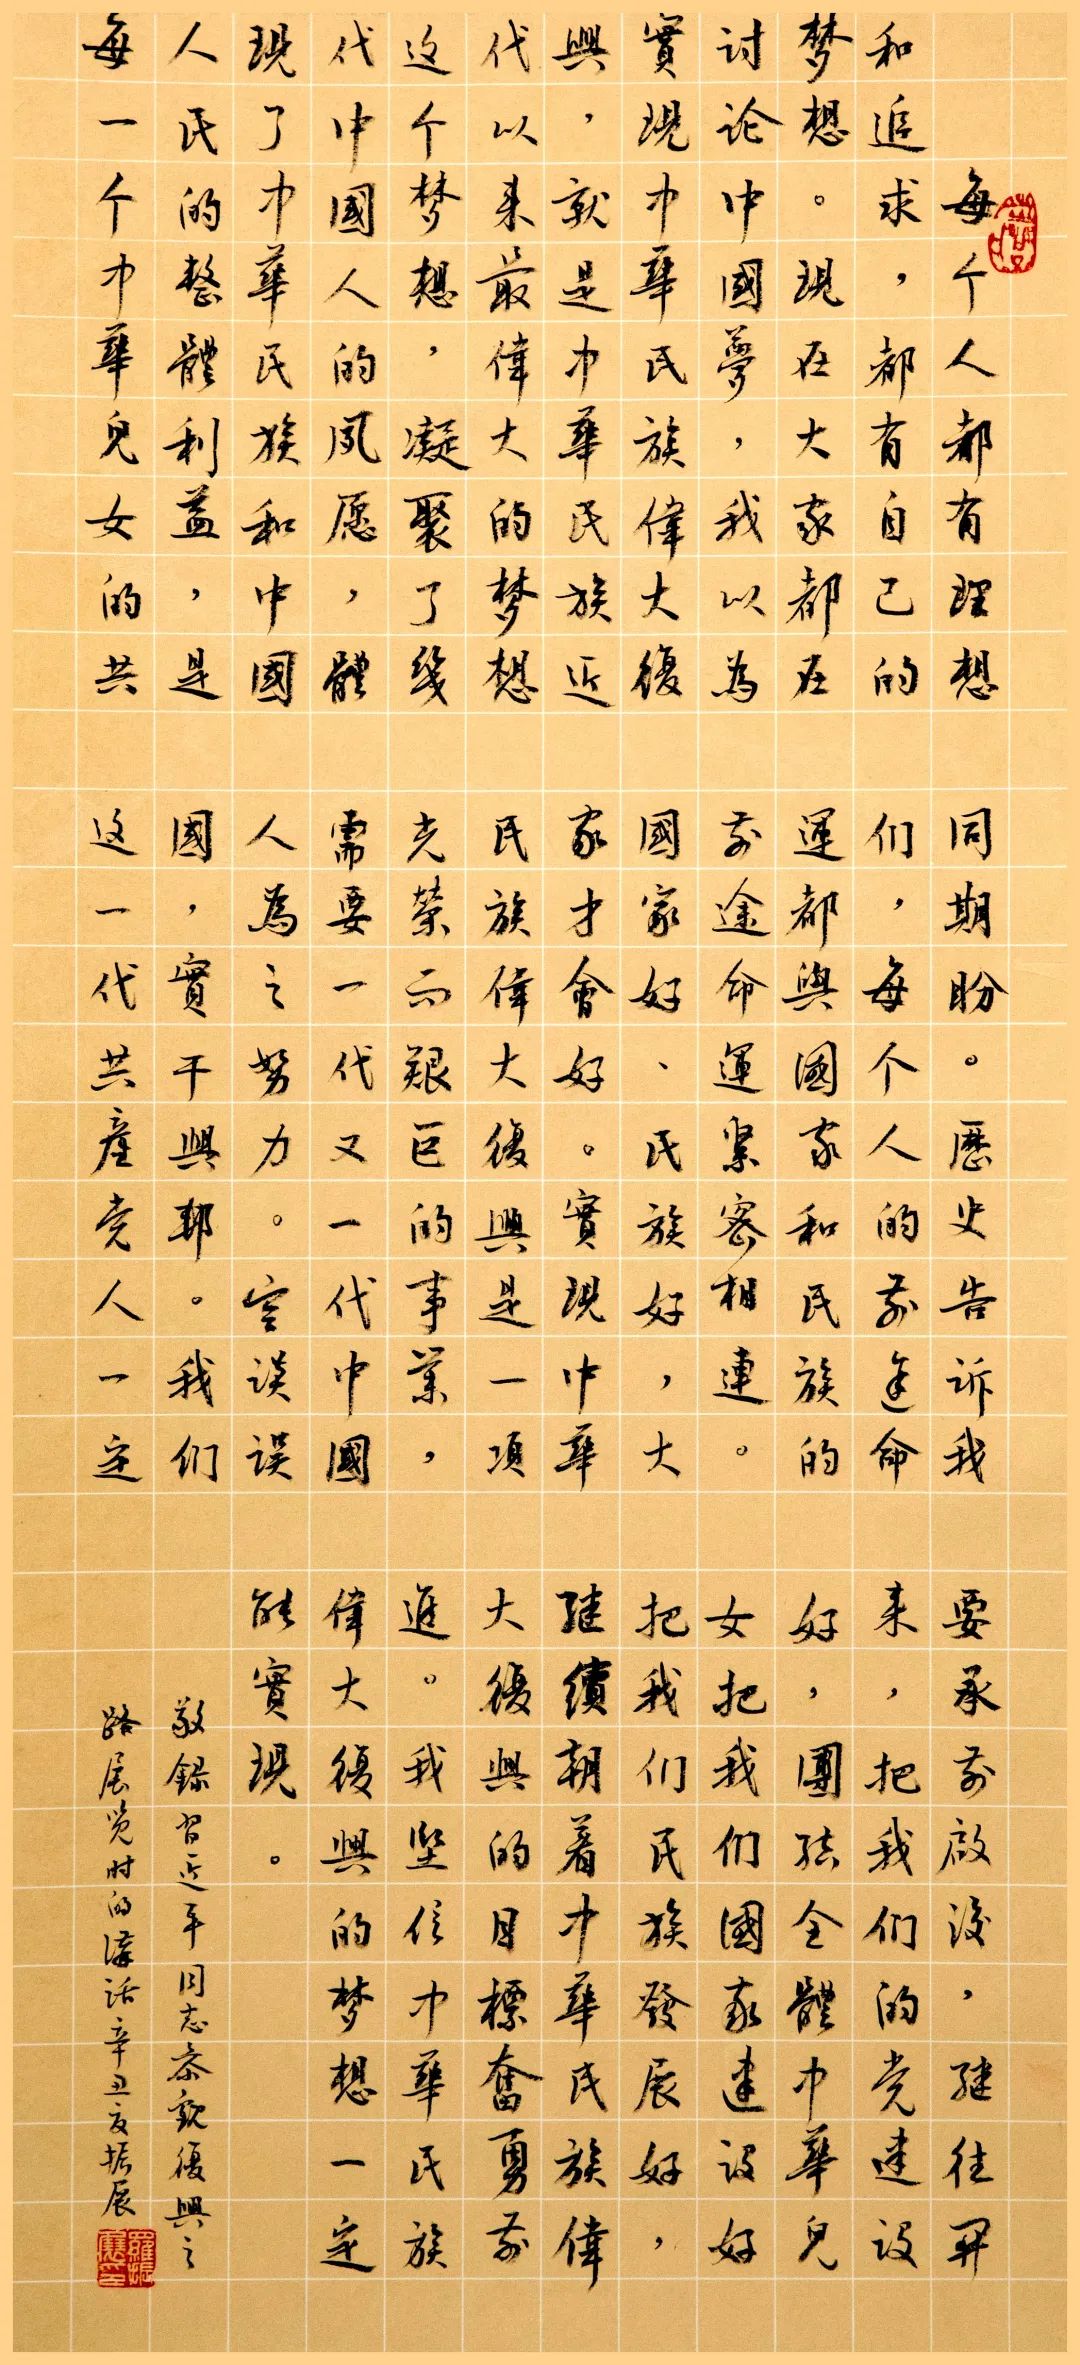 每个人都有理想
和追求，都有自己的
梦想。現在大家都在
讨论中國夢，我以為
實現中華民族偉大復
興，就是中華民族近
代以来最偉大的梦想
这个梦想，凝聚了幾
代中國人的夙愿，體
現了中華民族和中國
人民的整體利益，是
每一个中華兒女的共
同期盼。歷史告诉我
们，每个人的前途命
運都與國家和民族的
前途命運紧密相連。
國家好、民族好，大
家才會好。實現中華
民族偉大復興是一項
光荣而艱巨的事業，
需要一代又一代中國
人為之努力。空谈误
國，實干興邦。我们
这一代共産党人一定
要承前啟後，继往開
来，把我们的党建设
好，團结全體中華兒
女把我们國家建设好
把我们民族發展好，
继續朝着中華民族偉
大復興的目標奮勇前
進。我坚信中華民族
偉大復興的梦想一定
能實現。
敬録習近平同志参觀復興之
路展览时的講话辛丑夏振展